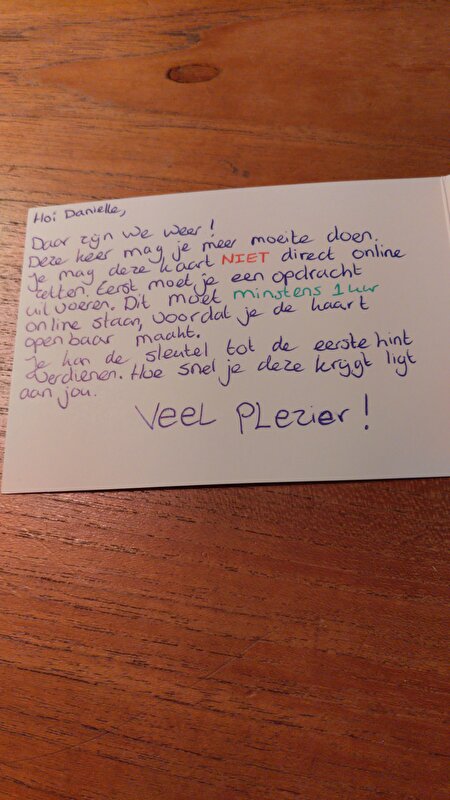 Hoi Danielle,
Daar zijn we weer!
Deze keer mag je meer moeite doen.
Je mag deze kaart NIET direct online
zetten. Eerst moet je een opdracht
uitvoeren. Dit moet minstens 1 uur
online staan, voordat je de kaart
openbaar maakt.
Je kan de sleutel tot de eerste hint
verdienen. Hoe snel je deze krijgt ligt
aan jou.
Veel Plezier!